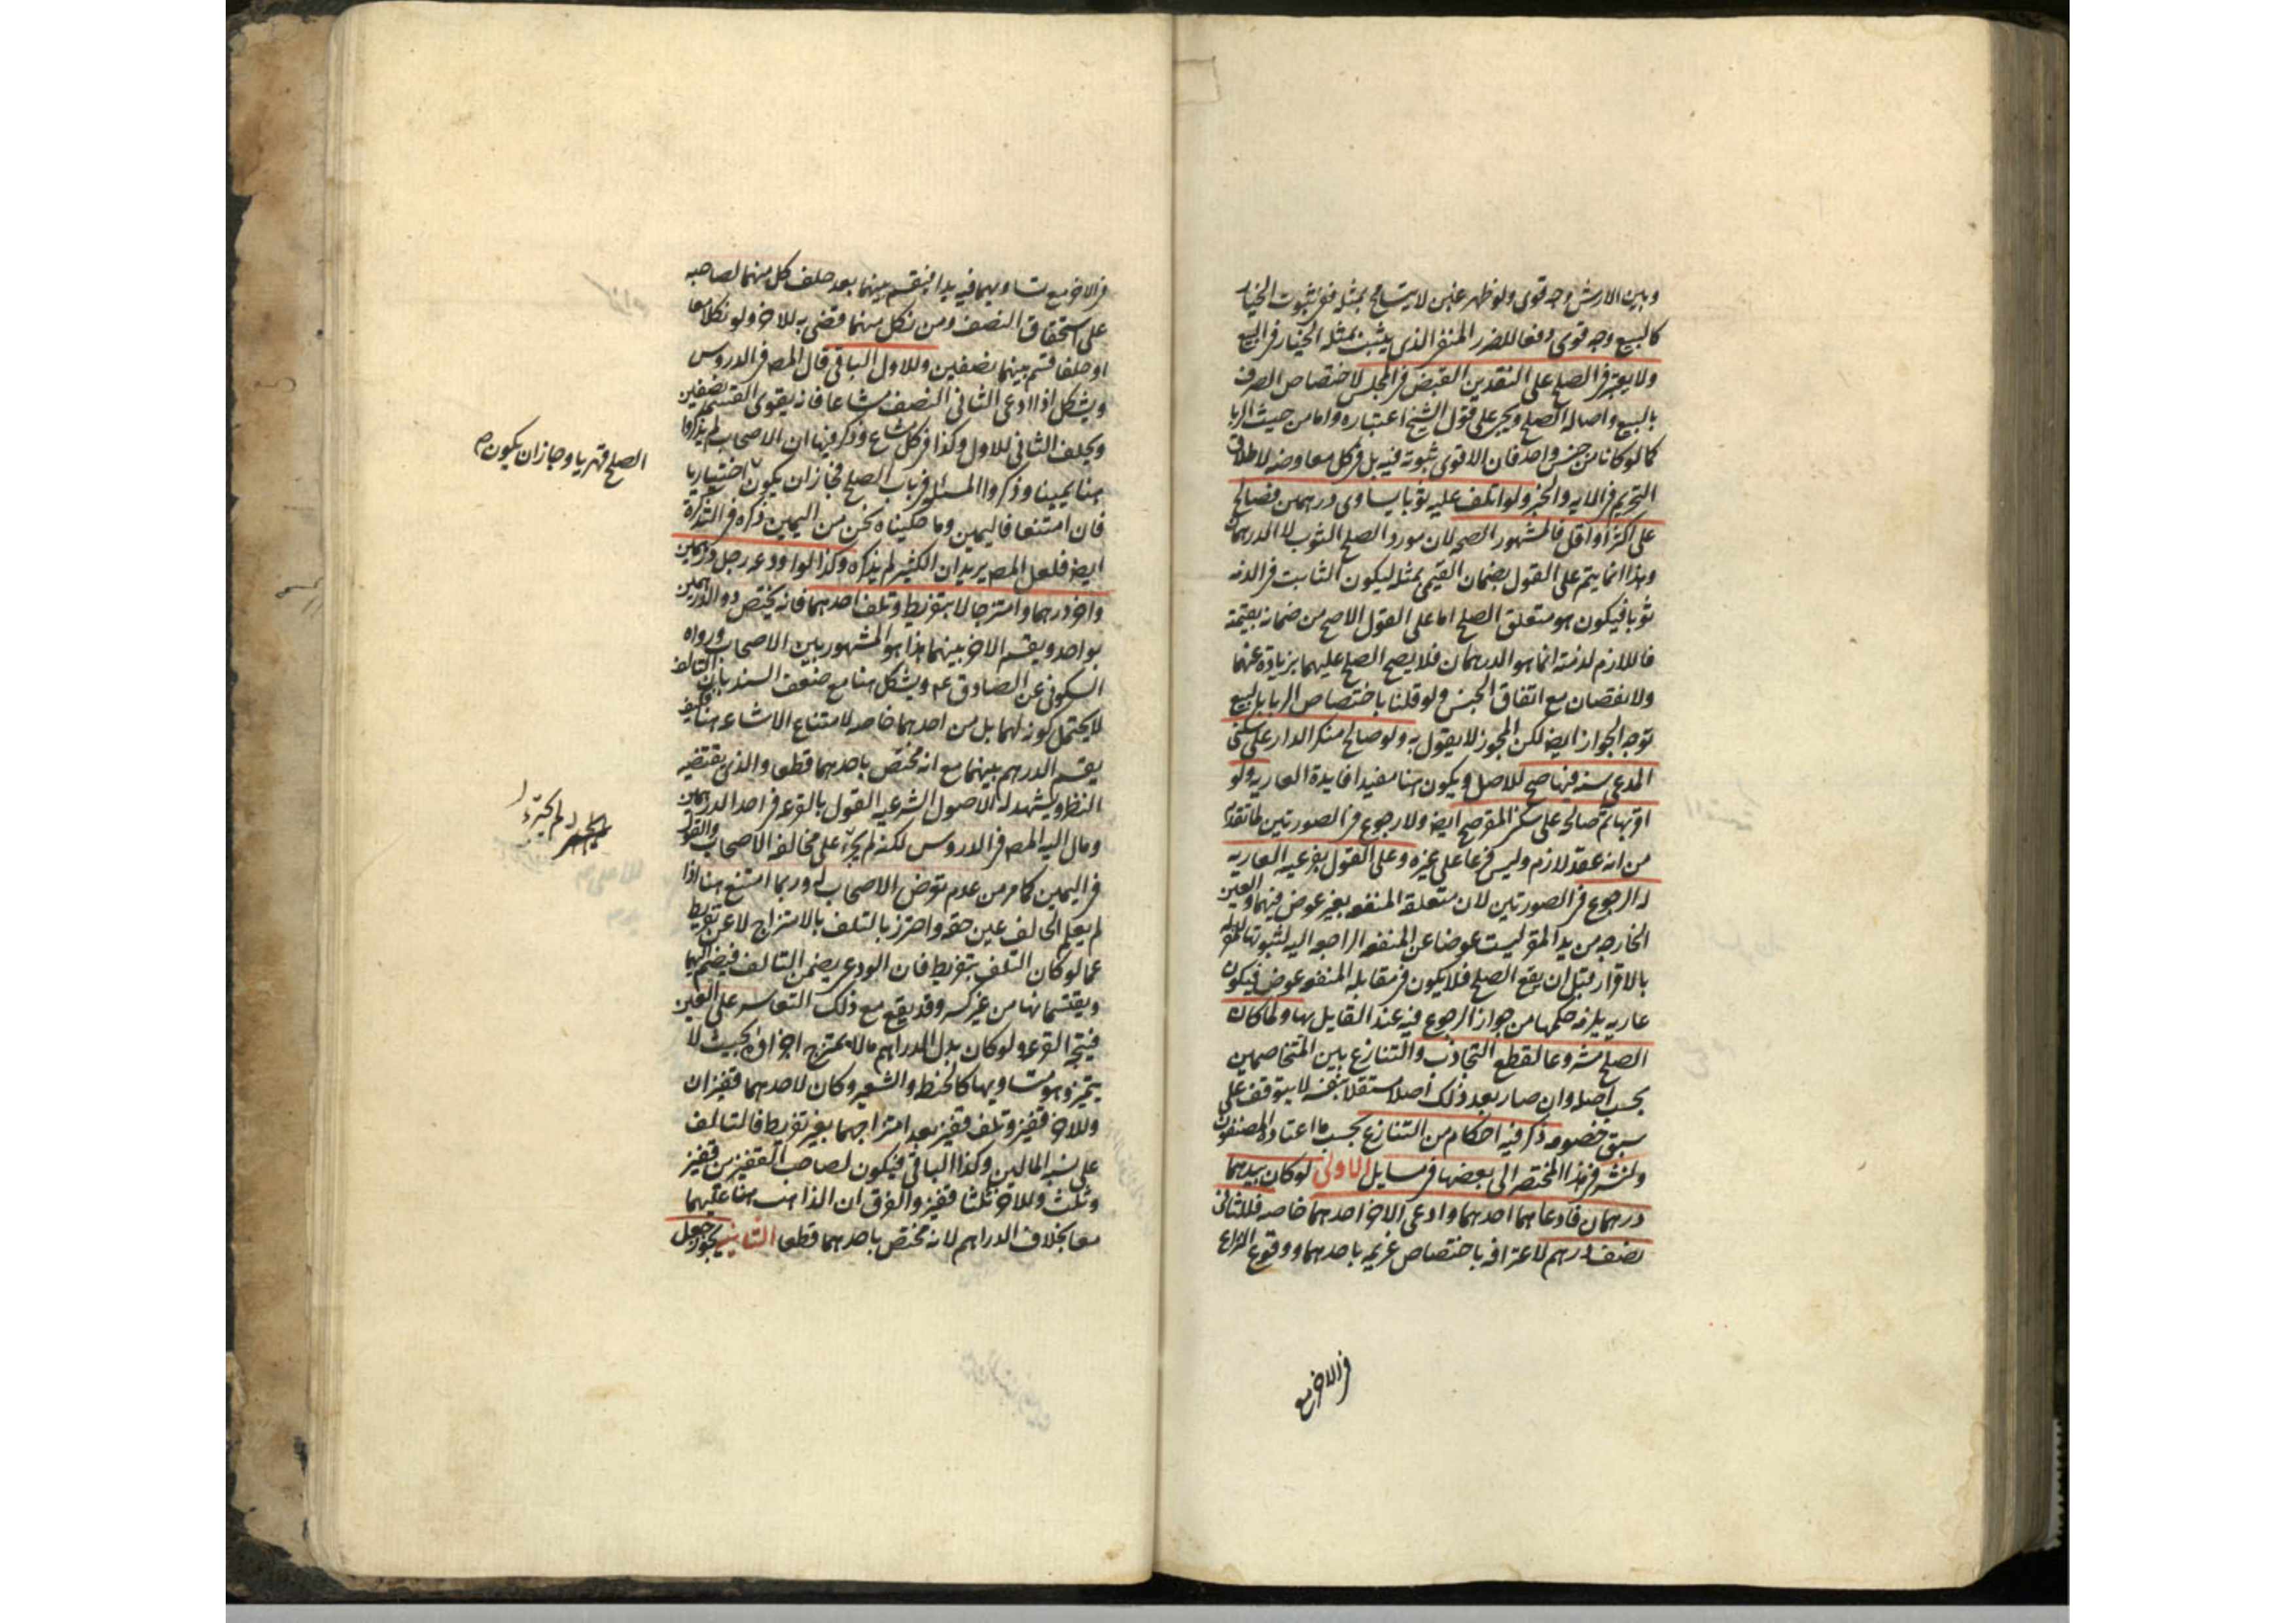 وبين الارش وجه قوى ولو ظهر غبن لا يتسامح بمثله ففى ثبوت الخيار
كالبيع وجه قوى دفعا للضرر المنفى الذى يثبت بمثله الخيار فى البيع
ولا يعتبر فى الصلح على النقدين القبض فى المجلس لاختصاص الصرف
بالبيع واصالة الصلح ويجى على قول الشيخ اعتباره واما من حيث الربا
كما لو كانا من جنس واحد فان الاقوى ثبوته فيه بل فى كل معاوضة لاطلاق
التحريم فى الاية والخبر ولو اتلف عليه ثوبا يساوى درهمين فصالح
على اكثر او اقل فالمشهور الصحة لان مورد الصلح الثوب لا الدرهمان
وهذا انما يتم على القول بضمان القيمى بمثله ليكون الثابت فى الذمة
ثوبا فيكون هو متعلق الصلح اما على القول الاصح من ضمانه بقيمته
فاللازم لذمته انما هو الدرهمان فلا يصح الصلح عليهما بزيادة عنهما
ولا نقصان مع اتفاق الجنس ولو قلنا باختصاص الربا بالبيع
توجه الجواز ايضا لكن المجوز لا يقول به ولو صالح منكر الدار على سكنى
المدعى سنة فيها صح للاصل ويكون هنا مفيدا فايدة العارية ولو
اقر بها ثم صالحه على سكنى المقر صح ايضا ولا رجوع فى الصورتين لما تقدم
من انه عقد لازم وليس فرعا على غيره وعلى القول بفرعية العارية
له الرجوع فى الصورتين لان متعلقه المنفعة بغير عوض فيهما والعين
الخارجة من يد المقر ليست عوضا عن المنفعة الراجعة اليه لثبوتها للمقر له
بالاقرار قبل ان يقع الصلح فلا يكون فى مقابلة المنفعة عوض فيكون
عارية يلزمه حكمها من جواز الرجوع فيه عند القايل بها ولما كان
الصلح مشروعا لقطع التجاذب والتنازع بين المتخاصمين
بحسب اصله وان صار بعد ذلك اصلا مستقلا بنفسه لا يتوقف على
سبق خصومة ذكر فيه احكام من التنازع بحسب ما اعتاده المصنفون
ولنشر فى هذا المختصر الى بعضها فى مسايل الاولى لو كان بيدهما
درهمان فادعاهما احدهما وادعى الاخر احدهما خاصة فللثانى
نصف درهم لاعترافه باختصاص غريمه باحدهما ووقوع النزاع
فى الاخر مع
فى الاخر مع تساويهما فيه يدا فيقسم بينهما بعد حلف كل منهما لصاحبه
على استحقاق النصف ومن نكل منهما قضى به للاخر ولو نكلا معا
او حلفا قسم بينهما نصفين وللاول الباقى قال المص فى الدروس
ويشكل اذا ادعى الثانى النصف مشاعا فانه يقوى القسمة نصفين
ويحلف الثانى للاول وكذا فى كل مشاع وذكر فيها ان الاصحاب لم يذكروا
هنا يمينا وذكروا المسئلة فى باب الصلح فجاز ان يكون اختياريا
الصلح قهريا وجاز ان يكون
فان امتنعا فاليمين وما حكيناه نحن من اليمين ذكره فى التذكرة
ايضا فلعل المص يريد ان الكثير لم يذكره وكذا لو اودعه رجل درهمين
واخر درهما وامتزجا لا بتفريط وتلف احدهما فانه يختص ذو الدرهمين
بواحد ويقسم الاخر بينهما هذا هو المشهور بين الاصحاب ورواه
السكونى عن الصادق ع ويشكل هنا مع ضعف السند بان التالف
لا يحتمل كونه لهما بل من احدهما خاصة لامتناع الاشاعة هنا فكيف
يقسم الدرهم بينهما مع انه مختص باحدهما قطعا والذى يقتضيه
النظر ويشهد له الاصول الشرعية القول بالقرعة فى احد الدرهمين
ومال اليه المص فى الدروس لكنه لم يجرء على مخالفة الاصحاب والقول
لم يجرء
فى اليمين كما مر من عدم تعرض الاصحاب له وربما امتنع هنا اذا
لم يعلم الحالف عين حقه واحترز بالتلف بالامتزاج لا عن تفريط
عما لو كان التلف بتفريط فان الودعى يضمن التالف فيضم اليهما
ويقتسمانها من غير كسر وقد يقع مع ذلك التعاسر على العين
فيتجه القرعة ولو كان بدل الدراهم مالا يمتزج اجزاؤه بحيث لا
يتميز وهو متساويها كالحنطة والشعير وكان لاحدهما قفيزان
وللاخر قفيز وتلف قفيز بعد امتزاجهما بغير تفريط فالتالف
على نسبة المالين وكذا الباقى فيكون لصاحب القفيزين قفيز
وثلث وللاخر ثلثا قفيز والفرق ان الذاهب هنا عليهما
معا بخلاف الدراهم لانه مختص باحدهما قطعا الثانية يجوز جعل